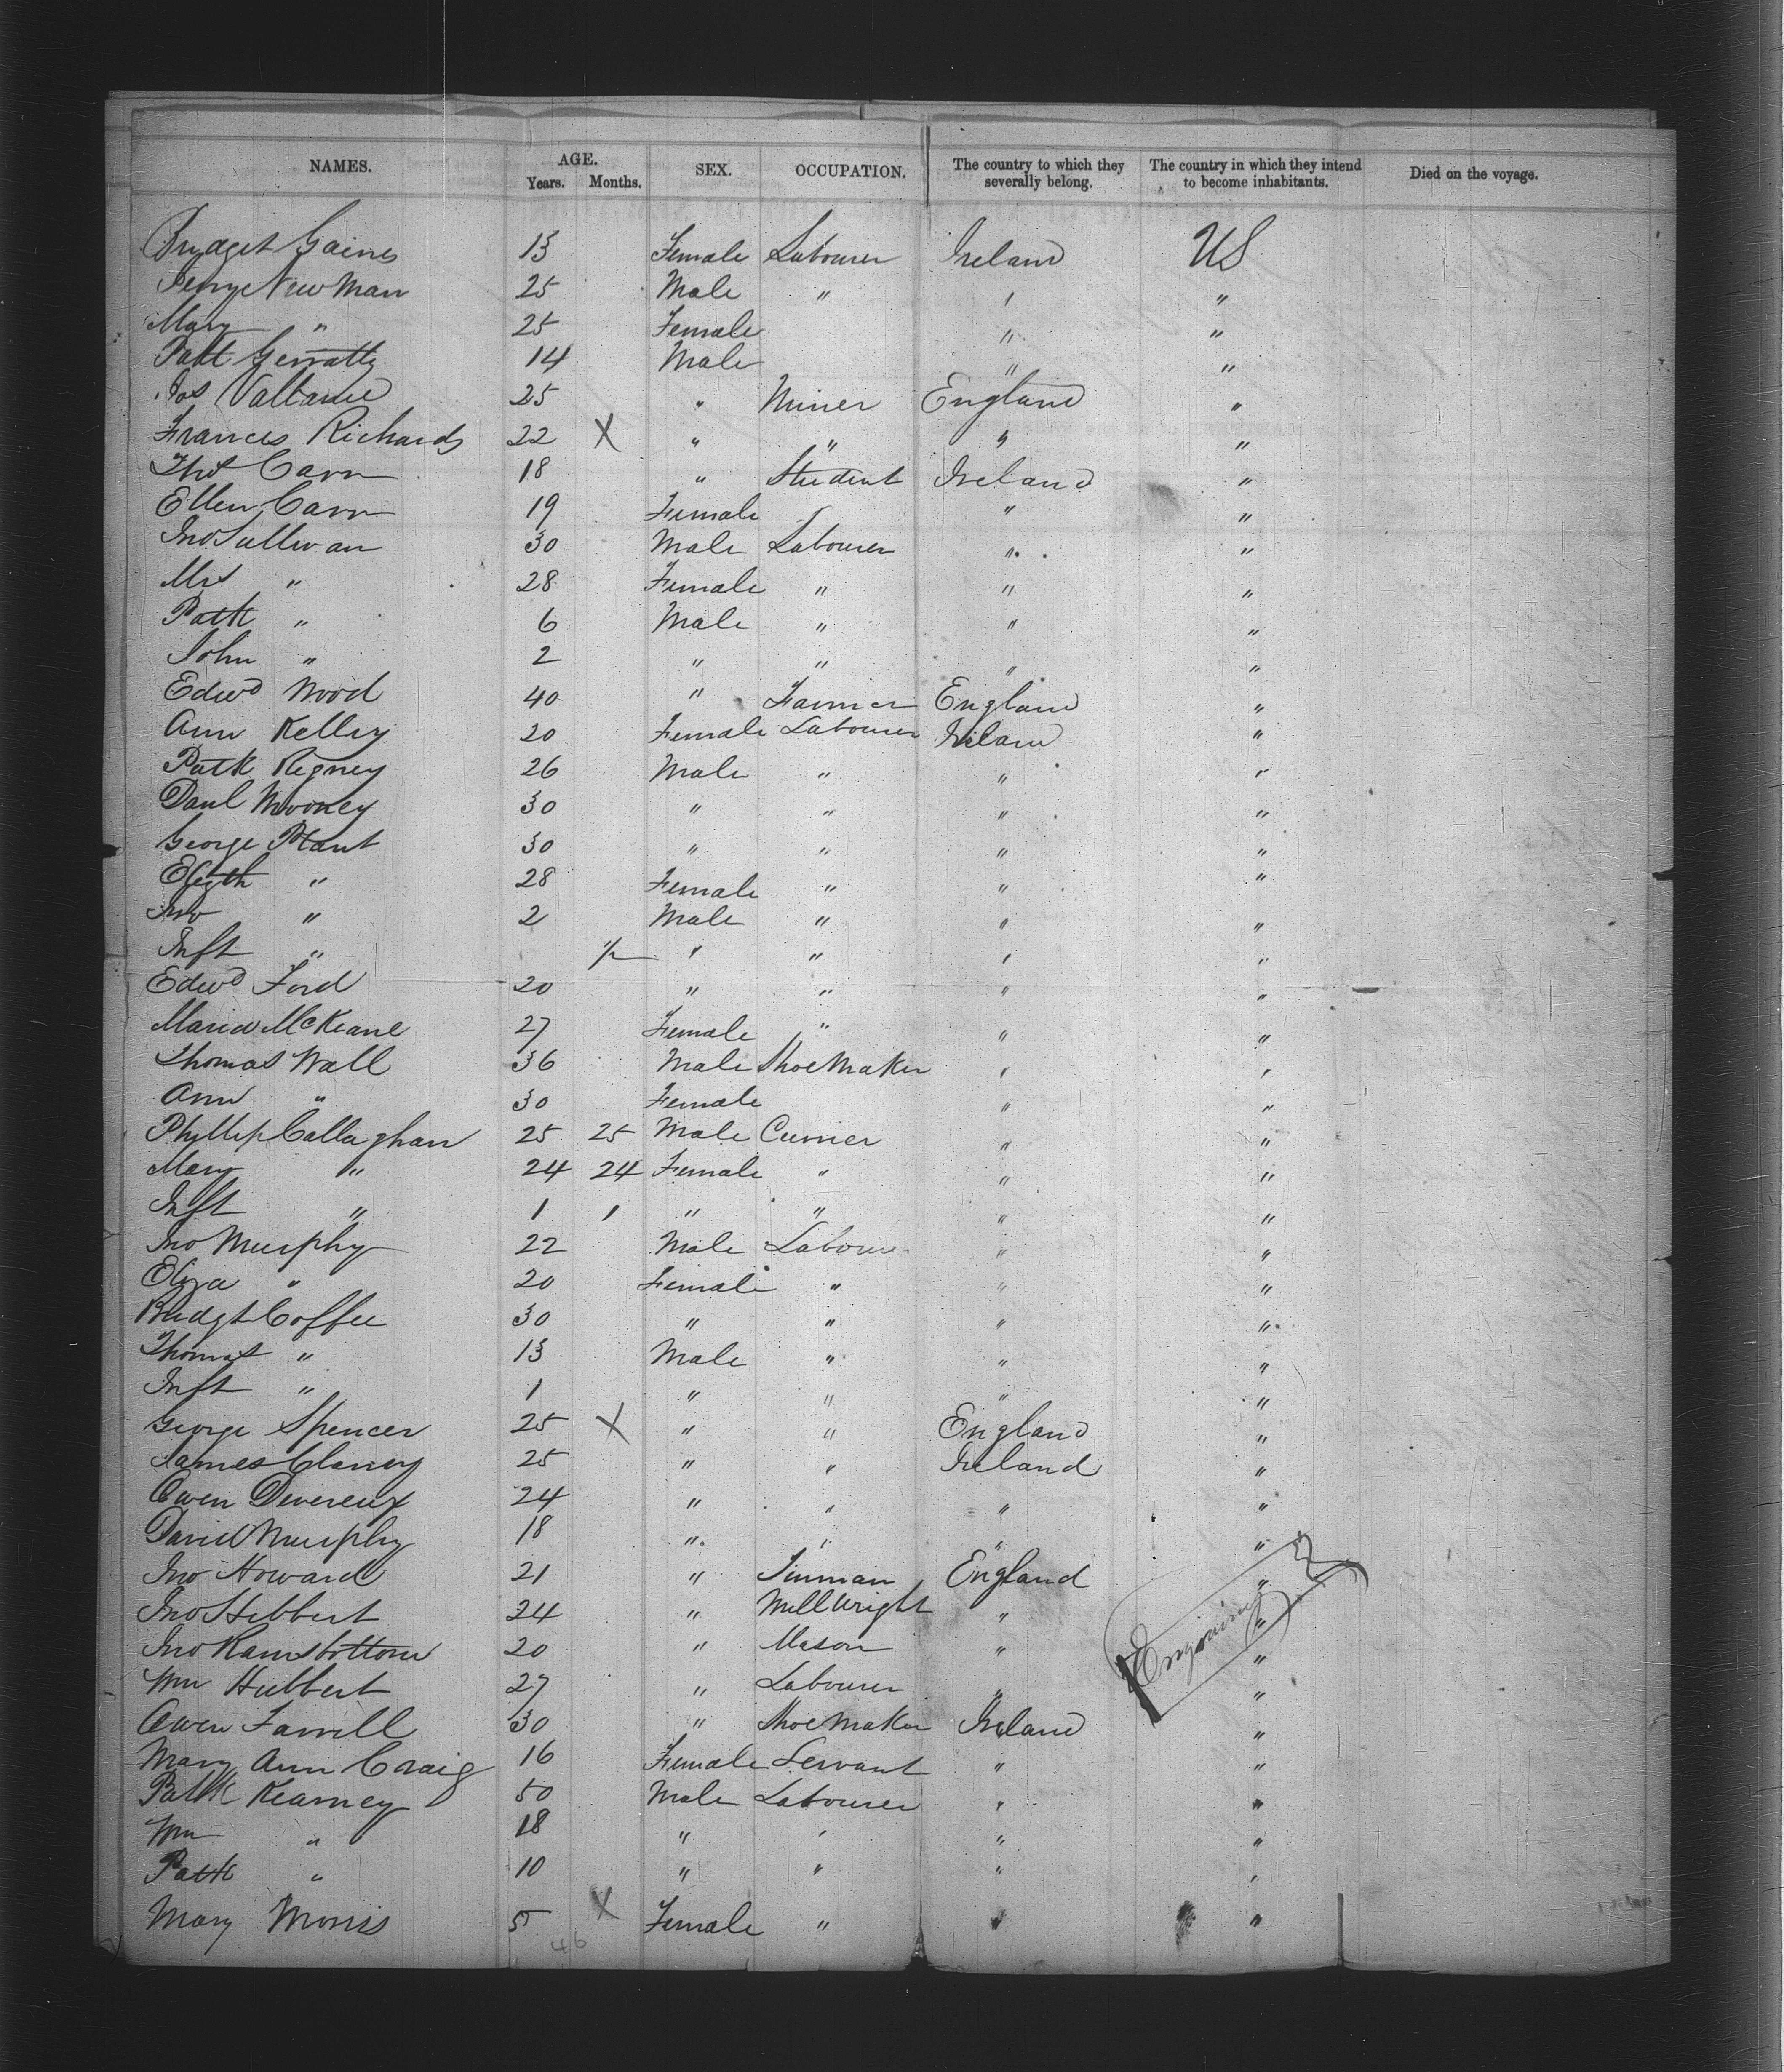 NAMES. AGE. Years. Months. SEX. OCCUPATION. The country to which they severally belong. The country in which they intend to become inhabitants. Died on the voyage.
Bridget Gaines 13 Female Labourer Ireland US
Newman 25 Male " " "
Mary " 25 Female " "
Patt Gerratty 14 Male " "
Jos 25 " Miner England "
Frances Richards 22 X " " " "
Thos Carr 18 " Student Ireland "
Ellen Carr 19 Female " "
Jno Sullivan 30 Male Labourer " "
Mrs " 28 Female " " "
Patk " 6 Male " " "
John " 2 " " " "
Edwd Wood 40 " Farmer England "
Ann Kelley 20 Female Labourer Ireland "
Patk Regney 26 Male " " "
Danl Mooney 30 " " " "
George Plant 30 " " " "
Elizth " 28 Female " " "
Jno " 2 Male " " "
Inft " 1/2 " " " "
Edwd Ford 20 " " " "
Maria McKeane 27 Female " " "
Thomas Wall 36 Male ShoeMaker " "
Ann " 30 Female " "
Phillip Callaghan 25 25 Male Currier " "
Mary " 24 24 Female " " "
Inft " 1 1 " " " "
Jno Murphy 22 Male Labourer " "
Eliza " 20 Female " " "
Bridgt Coffee 30 " " " "
Thomas " 13 Male " " "
Inft " 1 " " " "
George Spencer 25 X " " England "
James Clancy 25 " " Ireland "
Owen Devereux 24 " " " "
David Murphy 18 " " " "
Jno Howard 21 " Tinman England "
Jno Hibbert 24 " MillWright " "
Jno Ramsbottom 20 " Mason " "
Wm Hubbert 27 " Labourer " "
Owen Farrell 30 " ShoeMaker Ireland "
Mary Ann Craig 16 Female Servant " "
Patk Kearney 50 Male Labourer " "
Wm " 18 " " " "
Patk " 10 " " " "
Mary Morris 5 X Female " " "
46